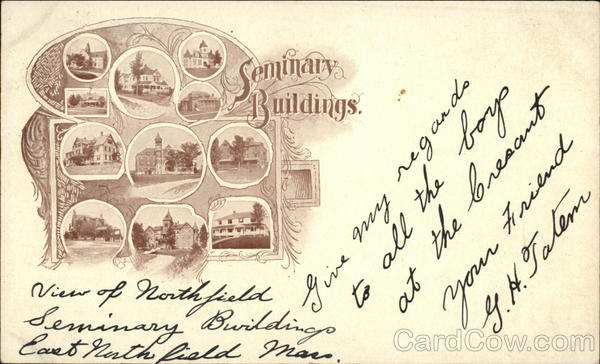 Seminary
Buildings.
Give my regards
to all the boys
at the Cresant
Your Friend
G. H. Tatem
View of Northfield
Seminary Buildings
East Northfield Mass.
CardCow.com